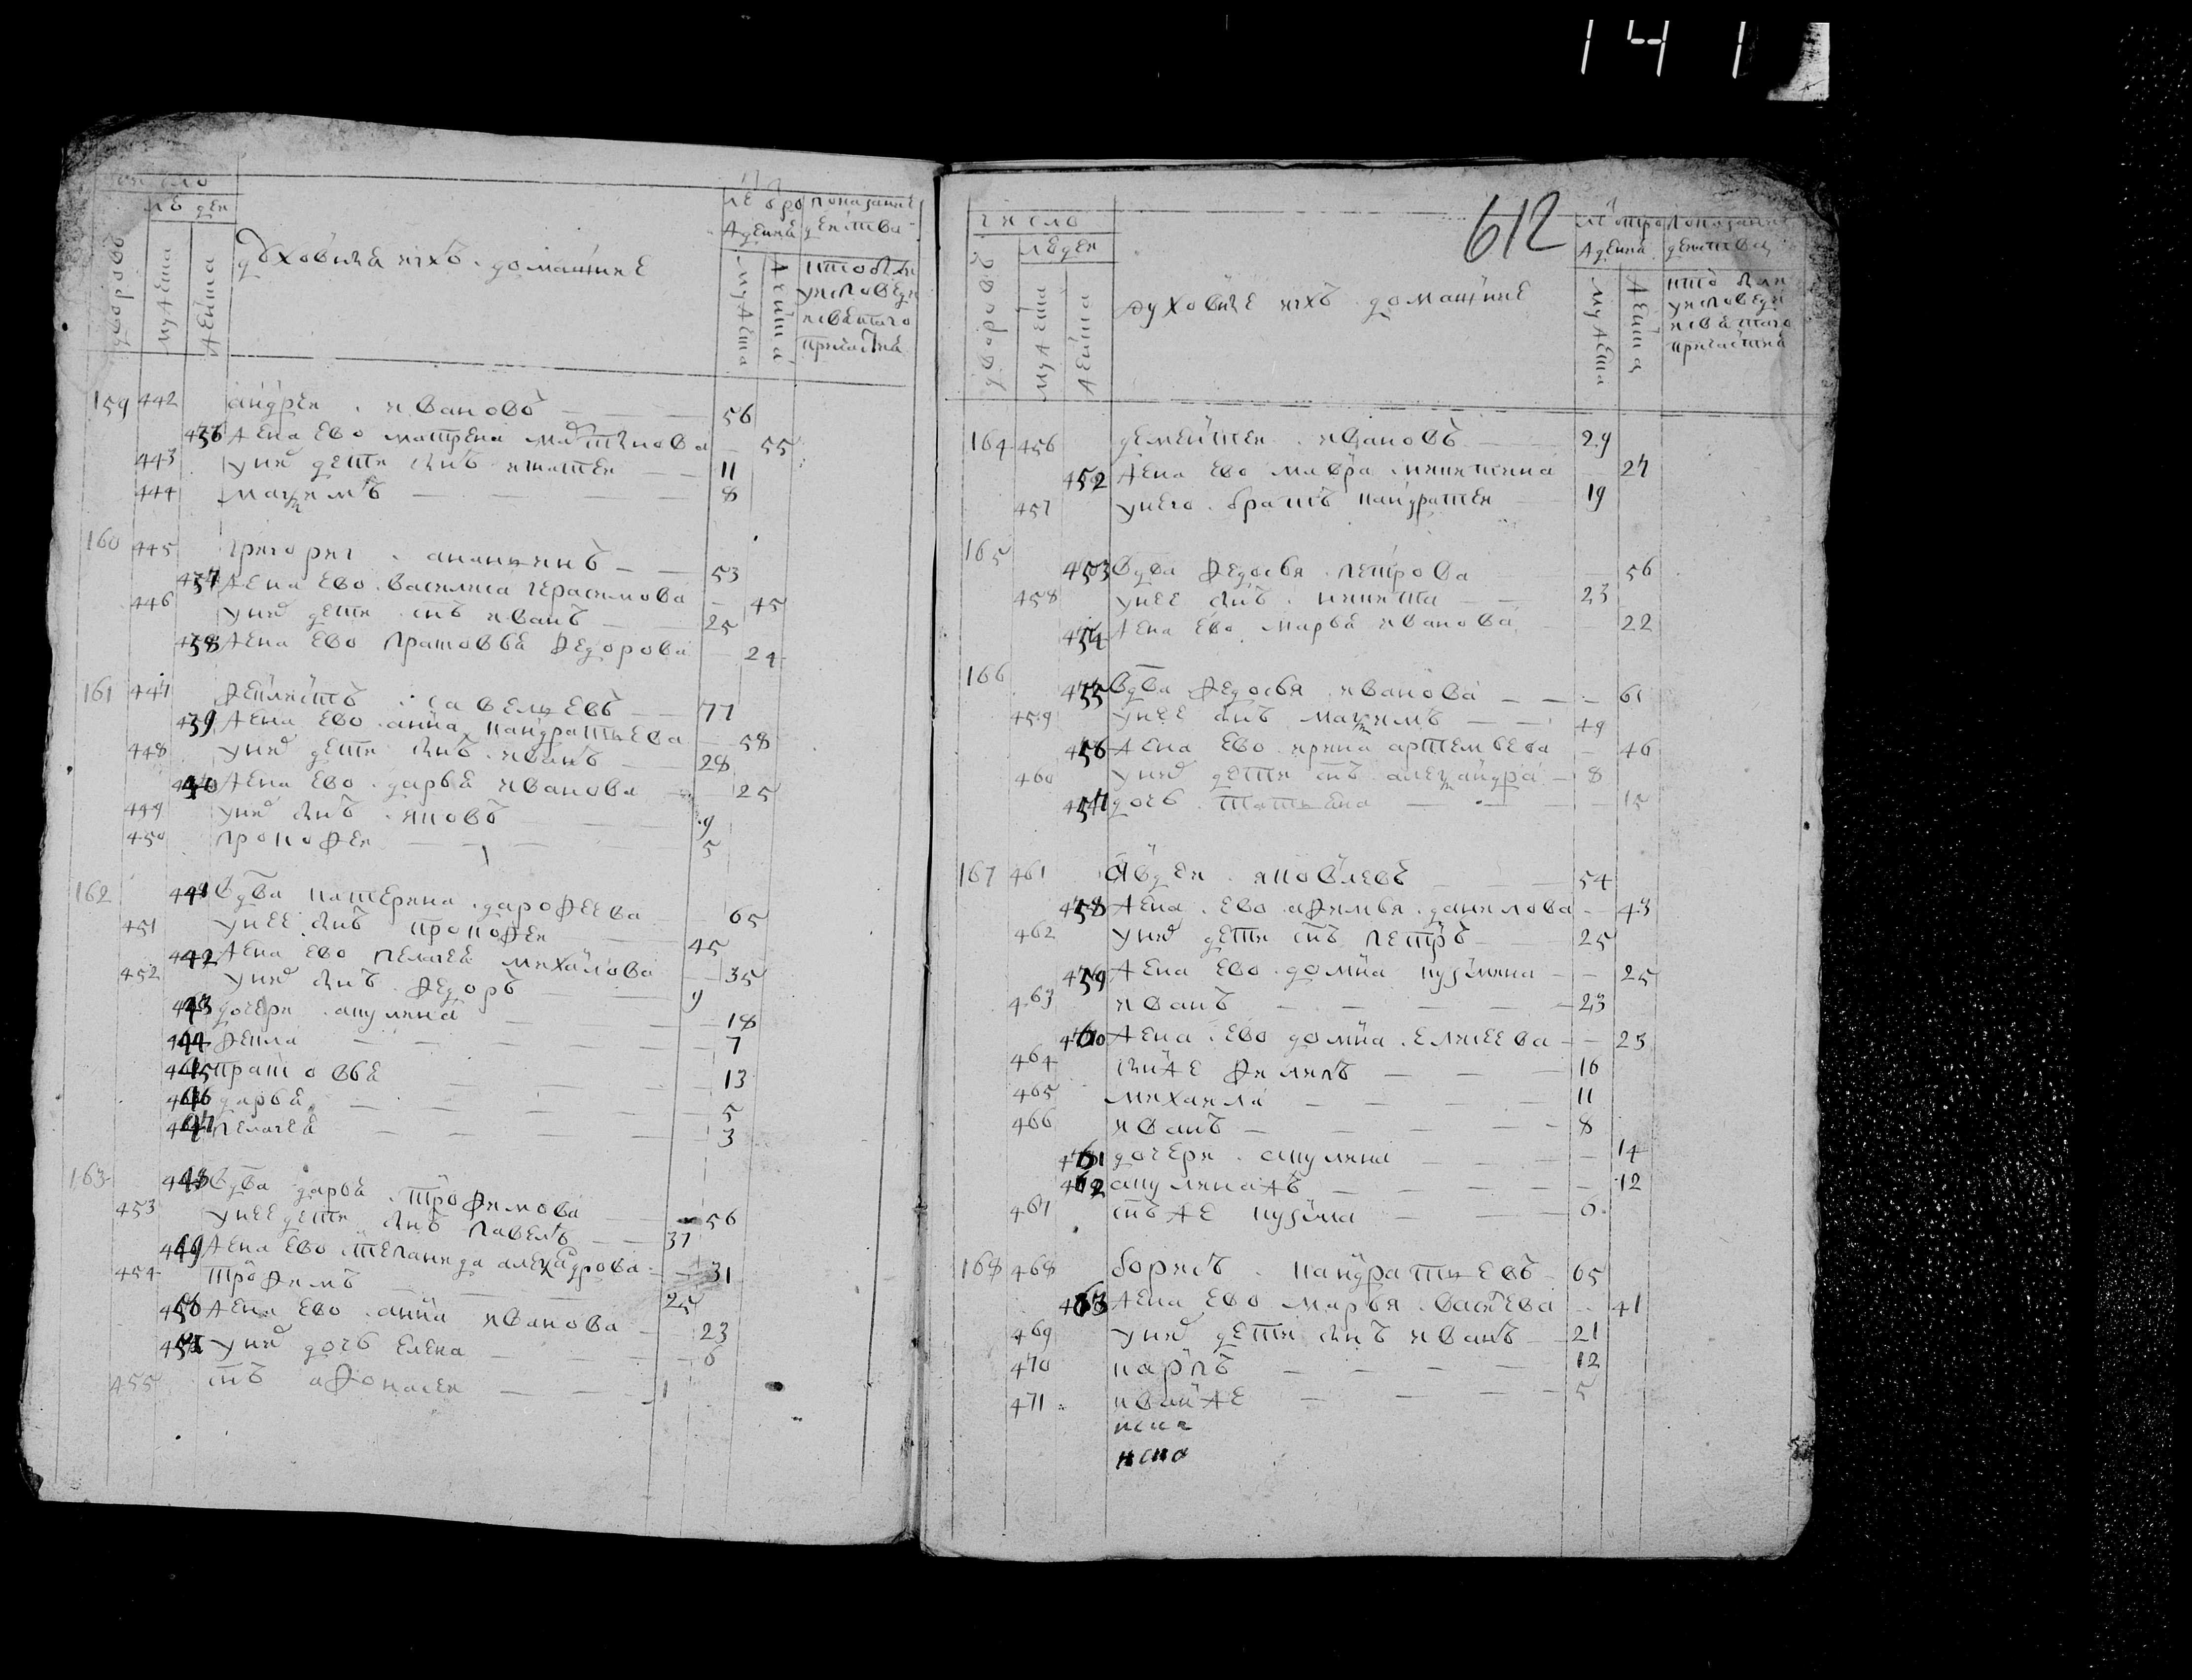 141
число
людеи
летро показание
жденiа деиства
дворовъ
мужеска
женска
духовныя ихъ домашние
мужеска
женска
кто былъ
уисповеди
исвятаго
причастия
159 442 андреи ивановъ 56
436 жена ево матрена мартынова 55
443 унихъ дети сынъ игнатеи 11
444 максимъ 8
160 445 григореи ананьинъ 53
437 жена ево василиса герасимова 45
446 унихъ дети снъ иванъ 25
438 жена ево прасковья федорова 24
161 447 феклистъ савельевъ 77
439 жена ево анна кандратьева 58
448 унихъ дети сынъ иванъ 28
440 жена ево дарья иванова 25
449 унихъ сынъ яковъ 9
450 прокофеи 5
162 441 вдва катерина дарофеева 65
451 унее сынъ прокофеи 45
442 жена ево пелагея михаилова 35
452 унихъ сынъ федоръ 9
443 дочери акулина 18
444 фекла 7
445 прасковья 13
446 дарья 5
447 пелагея 3
163 448 вдва дарья трофимова 56
453 унее дети сынъ павелъ 37
449 жена ево степанида александрова 31
454 трофимъ 25
450 жена ево анна иванова 23
451 унихъ дочь елена 6
455 снъ афонасеи 1
612
число
людеи
летро показание
жденiа деиства
дворовъ
мужеска
женска
духовные ихъ домашние
мужеска
женска
кто были
уисповеди
исвятаго
причастия
164 456 дементеи ивановъ 29
452 жена ево мавра никитина 27
457 унего братъ кандратеи 19
165 453 вдва федосья петрова 56
458 унее сынъ никита 23
454 жена ево марья иванова 22
166 455 вдва федосья иванова 61
459 унее сынъ максимъ 49
456 жена ево ирина артемьева 46
460 унихъ дети снъ александра 8
457 дочь татьяна 15
167 461 авдеи яковлевъ 54
458 жена ево афимья данилова 43
462 унихъ дети снъ петръ 25
459 жена ево домна кузмина 25
463 иванъ 23
460 жена ево домна елисеева 23
464 сынже филипъ 16
465 михаила 11
466 иванъ 8
461 дочери акулина 14
462 акулинажъ 12
467 снъ же кузма 6
168 468 борисъ кандратьевъ 65
463 жена ево марья васева 41
469 унихъ дети сынъ иванъ 21
470 карпъ 12
471 иванже 5